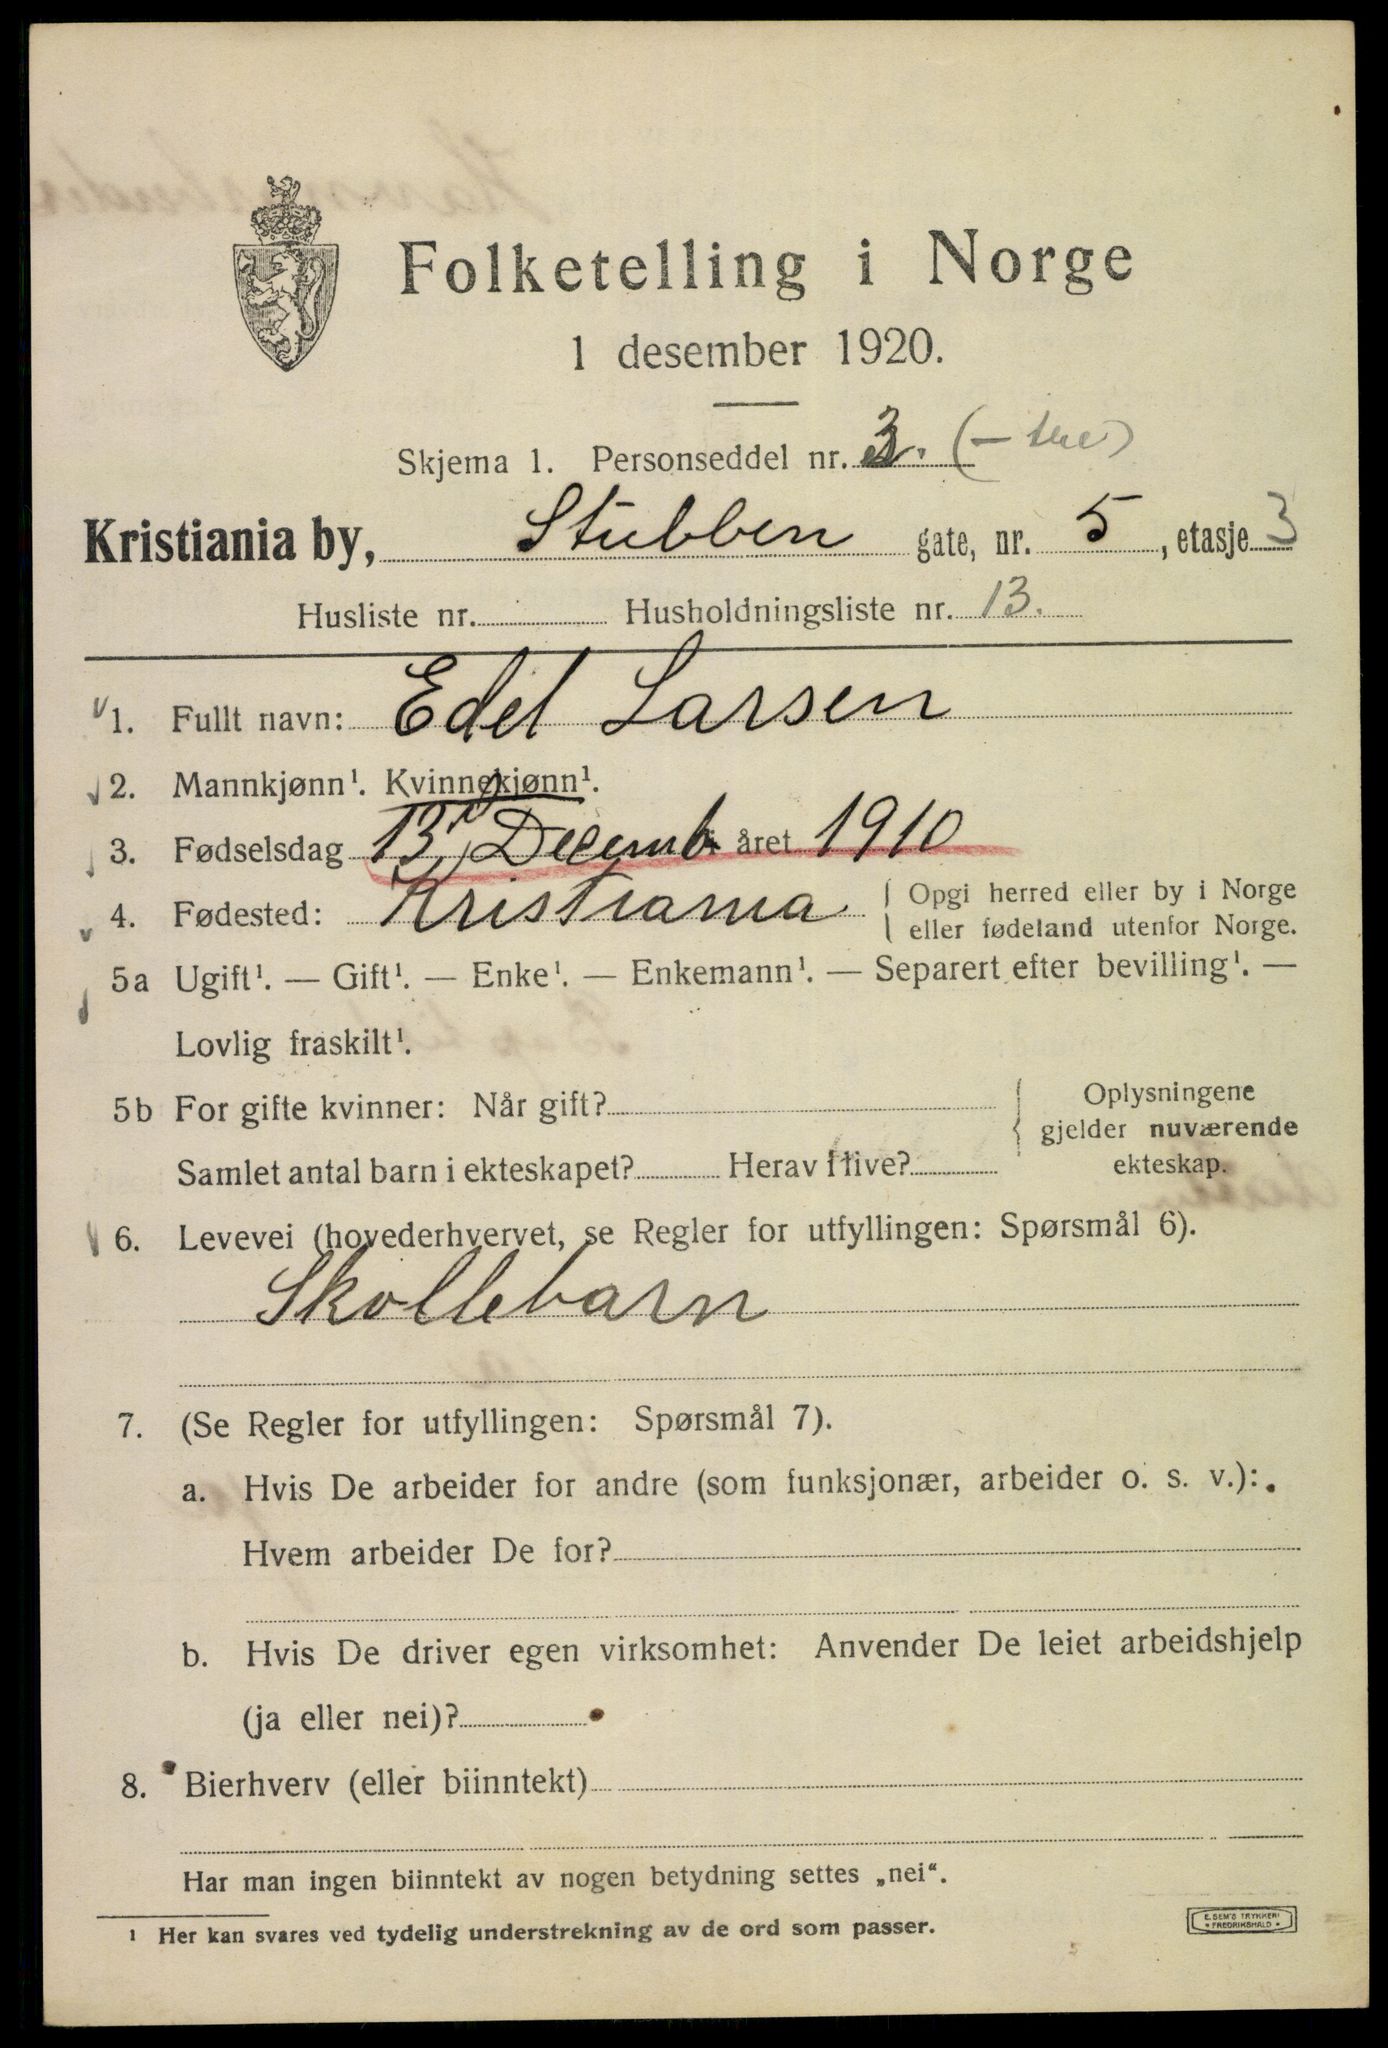 Folketelling i Norge
1 desember 1920.
Skjema 1. Personseddel nr. 3. (—
Kristiania by, Stubben gate, nr. 5, etasje 3
Husliste nr. Husholdningsliste nr. 13.
1. Fullt navn: Edel Larsen
2. Mannkjønn¹. Kvinnekjønn¹.
3. Fødselsdag 13 Decemb i året 1910
4. Fødested: Kristiania { Opgi herred eller by i Norge
eller fødeland utenfor Norge.
5a Ugift¹. — Gift¹. — Enke¹. — Enkemann¹. — Separert efter bevilling¹. —
Lovlig fraskilt¹.
5b For gifte kvinner: Når gift? { Oplysningene
gjelder nuværende
Samlet antal barn i ekteskapet? Herav i live? ekteskap.
6. Levevei (hovederhvervet, se Regler for utfyllingen: Spørsmål 6).
Skollebarn
7. (Se Regler for utfyllingen: Spørsmål 7).
a. Hvis De arbeider for andre (som funksjonær, arbeider o. s. v.):
Hvem arbeider De for?
b. Hvis De driver egen virksomhet: Anvender De leiet arbeidshjelp
(ja eller nei)?
8. Bierhverv (eller biinntekt)
Har man ingen biinntekt av nogen betydning settes „nei“.
¹ Her kan svares ved tydelig understrekning av de ord som passer.
E. SEM'S TRYKKERI
* FREDRIKSHALD *